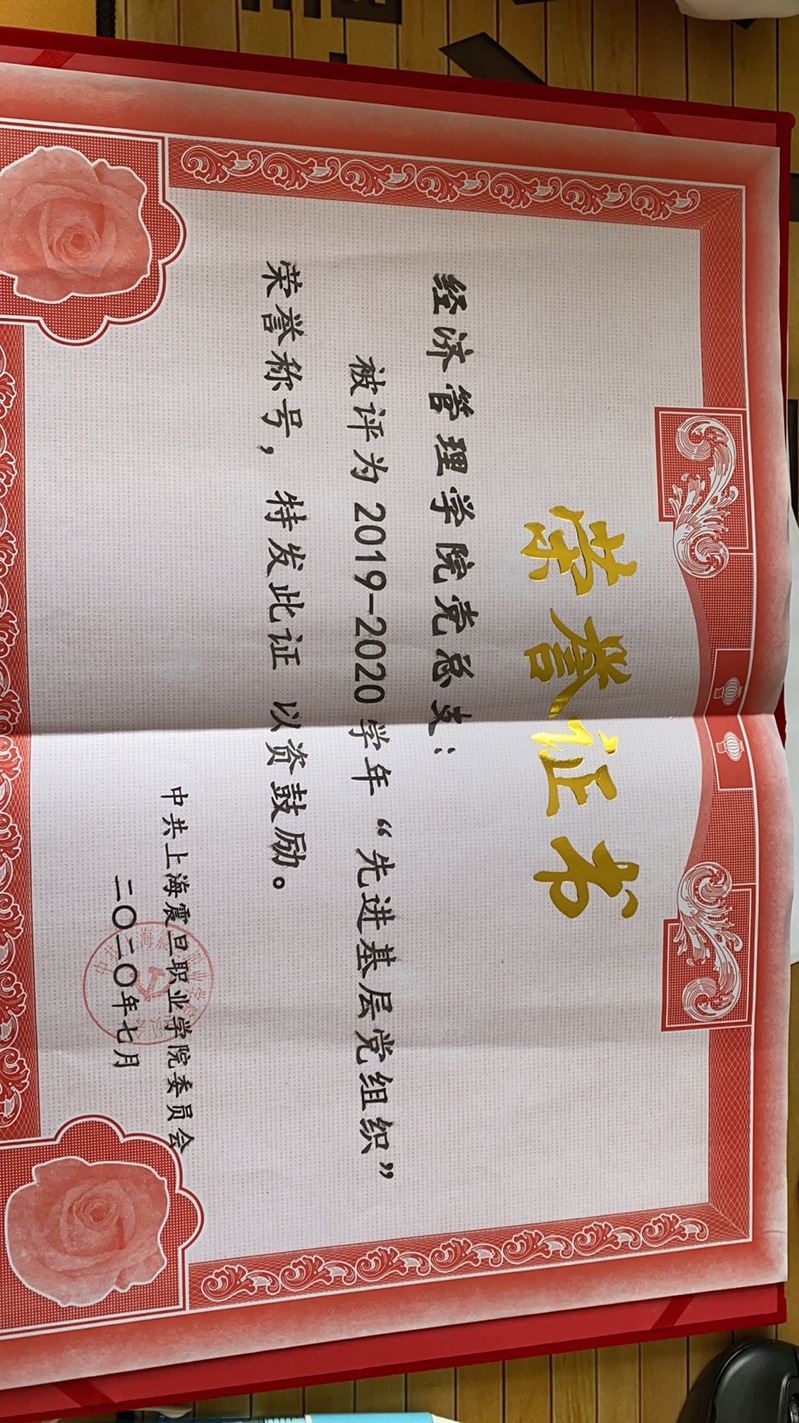 荣誉证书
经济管理学院党总支：
被评为2019-2020学年“先进基层党组织”
荣誉称号，特发此证 以资鼓励。
中共上海震旦职业学院委员会
二〇二〇年七月